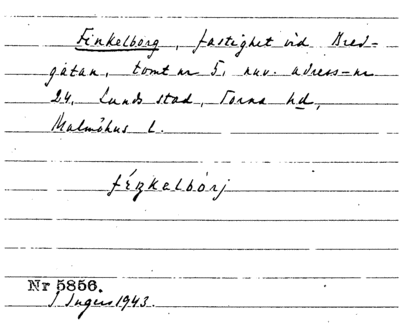 Finkelborg, fastighet vid Bred-
gatan, tomt nr 5, nuv. adress-nr
24. Lunds stad, Torna hd,
Malmöhus l.
Nr 5856.
Ingers 1943.